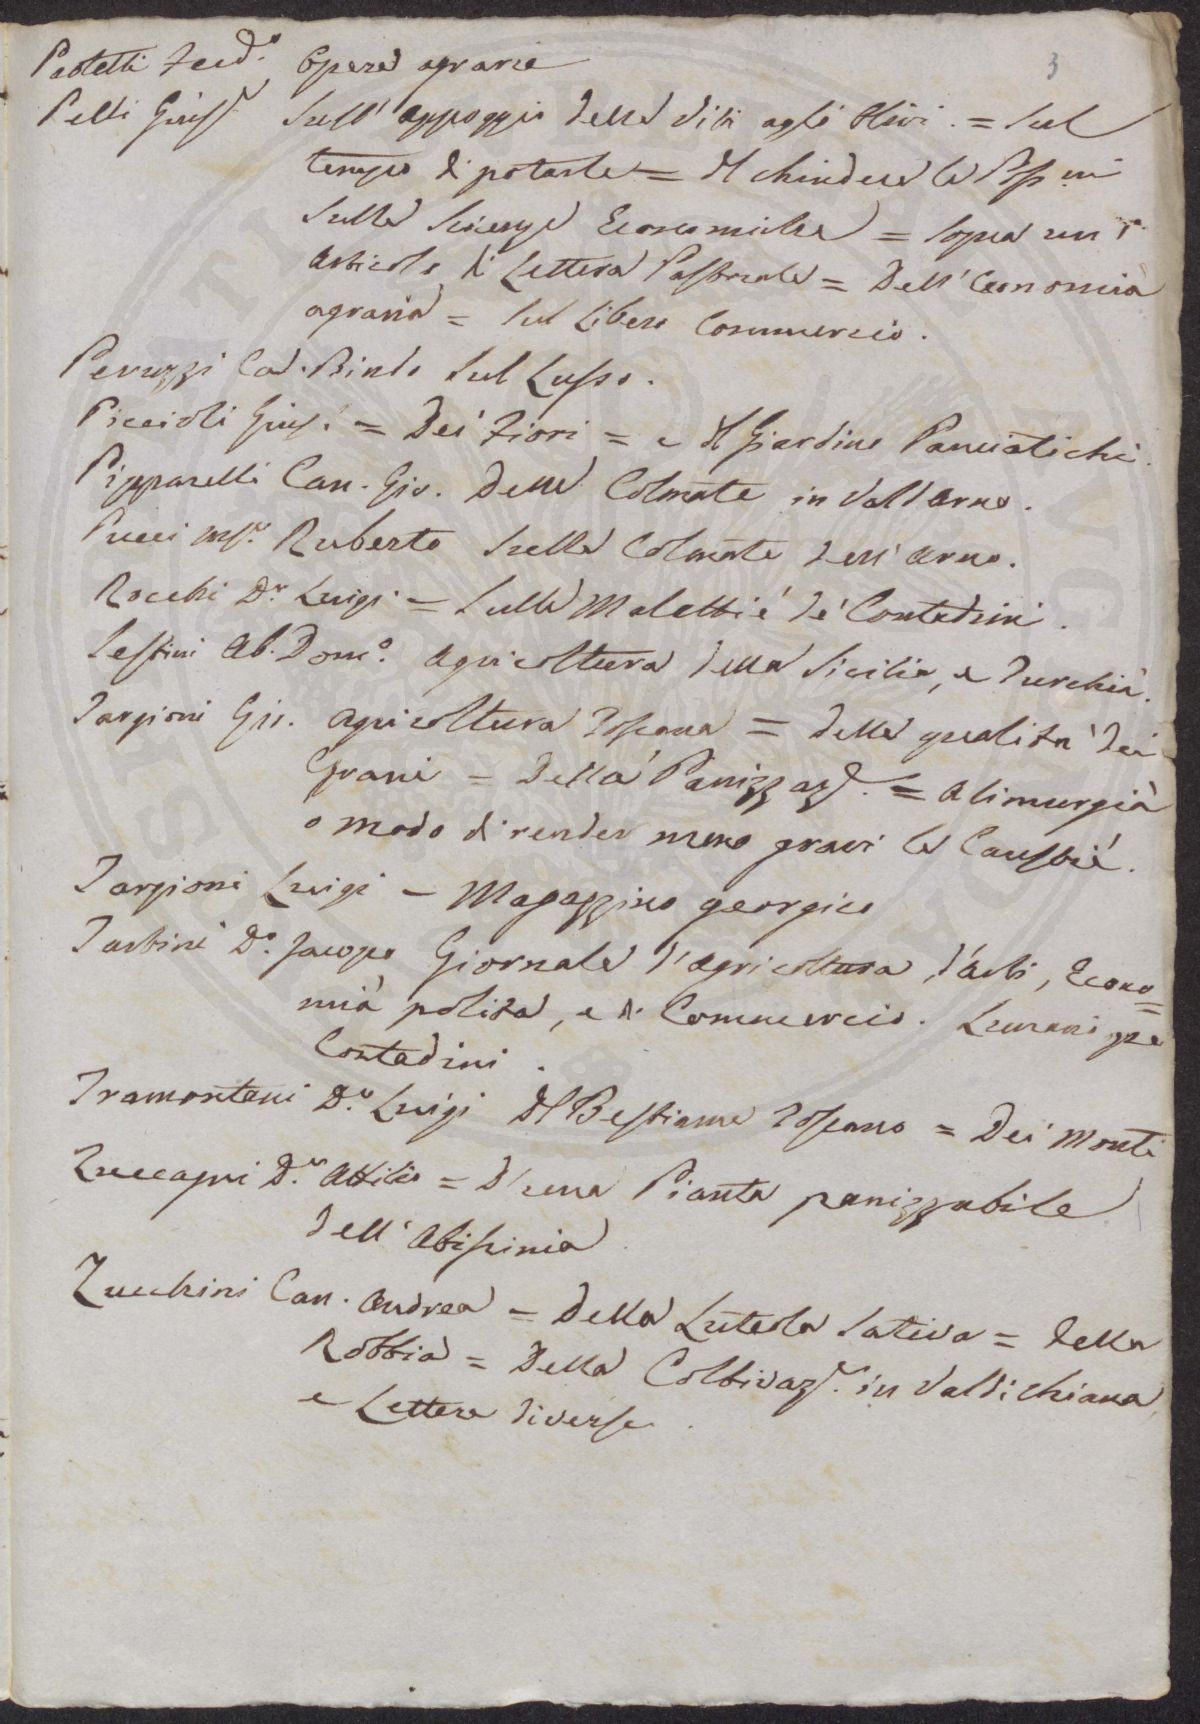 3
Paoletti Ferd.o Opere agrarie
Pelli Gius.e Sull' appoggio delle Viti agli Ulivi. = Sul
tempo di potarle = Il chiudere le Poss.ni
Sulle Scienze Economiche = Sopra un
Articolo di Lettera Pastorale = Dell' Economia
agraria = Sul libero Commercio.
Peruzzi Cav. Bindo Sul Lusso.
Piccioli Gius.e = Dei Fiori = e Il Giardino Panciatichi.
Pipparelli Can. Gio. Delle Colmate in Vald'arno.
Pucci M.r Ruberto Sulle Colmate dell' Arno.
Rocchi D.r Luigi = Sulle Malattie de' Contadini.
Sestini Ab. Dom.o Agricoltura della Sicilia, e Turchia.
Targioni Gio. Agricoltura Toscana = delle qualità dei
Grani = Della Panizzaz.e = Alimurgia
o modo di render meno gravi le Carestie.
Targioni Luigi = Magazzino georgico
Tartini D.r Jacopo Giornale d'Agricoltura, d'Arti, Econo=
mia politica, e di Commercio. Lunari pe
Contadini.
Tramontani D.r Luigi Il Bestiame Toscano = Dei Monti
Zuccagni D.r Attilio = D'una Pianta panizzabile
dell' Abissinia
Zucchini Can. Andrea = Della Luteola Sativa = della
Robbia = Della Coltivaz.e in Valdichiana
e Lettere diverse.